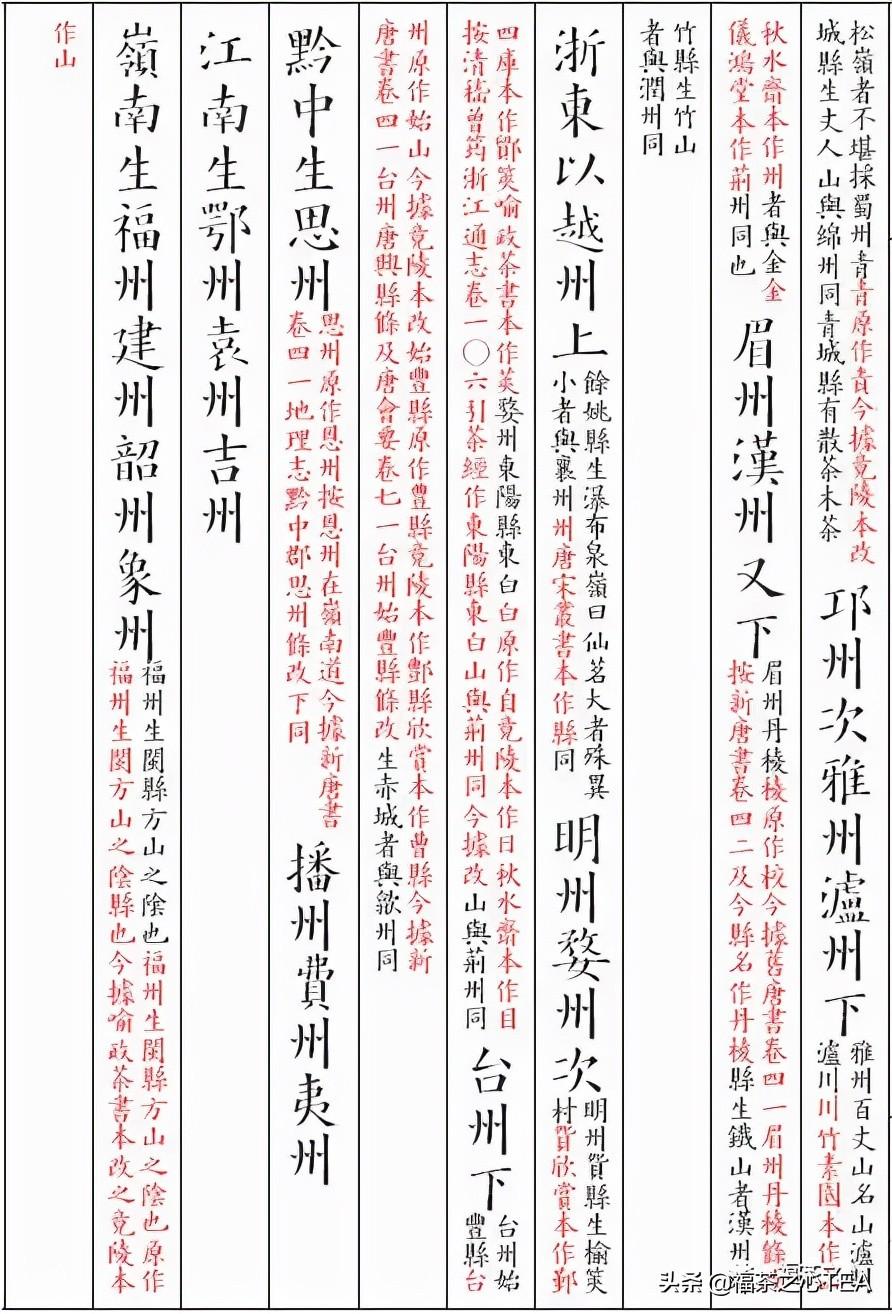 松嶺者不堪採蜀州青青原作責今據竟陵本改
城縣生丈人山與綿州同青城縣有散茶木茶
邛州次雅州瀘州下
雅州百丈山名山瀘州
瀘川川竹素園本作
秋水齋本作州者與金金
儀鴻堂本作荊州同也
眉州漢州又下
眉州丹稜稜原作校今據舊唐書卷四一眉州丹稜條
按新唐書卷四二及今縣名作丹稜縣生鐵山者漢州
竹縣生竹山
者與潤州同
浙東以越州上
餘姚縣生瀑布泉嶺曰仙茗大者殊異
小者與襄州州唐宋叢書本作縣同
明州婺州次
明州貿縣生榆筴
村貿欣賞本作鄞
四庫本作鄮筴喻政茶書本作莢婺州東陽縣東白白原作自竟陵本作日秋水齋本作目
按清嵇曾筠浙江通志卷一〇六引茶經作東陽縣東白山與荊州同今據改山與荊州同
台州下
台州始
豐縣台
州原作始山今據竟陵本改始豐縣原作豊縣竟陵本作酆縣欣賞本作曹縣今據新
唐書卷四一台州唐興縣條及唐會要卷七一台州始豐縣條改生赤城者與歙州同
黔中生思州
思州原作恩州按恩州在嶺南道今據新唐書
卷四一地理志黔中郡思州條改下同
播州費州夷州
江南生鄂州袁州吉州
嶺南生福州建州韶州象州
福州生閩縣方山之陰也福州生閩縣方山之陰也原作
福州生閩方山之陰縣也今據喻政茶書本改之竟陵本
作山
头条 @福茶之芯TEA